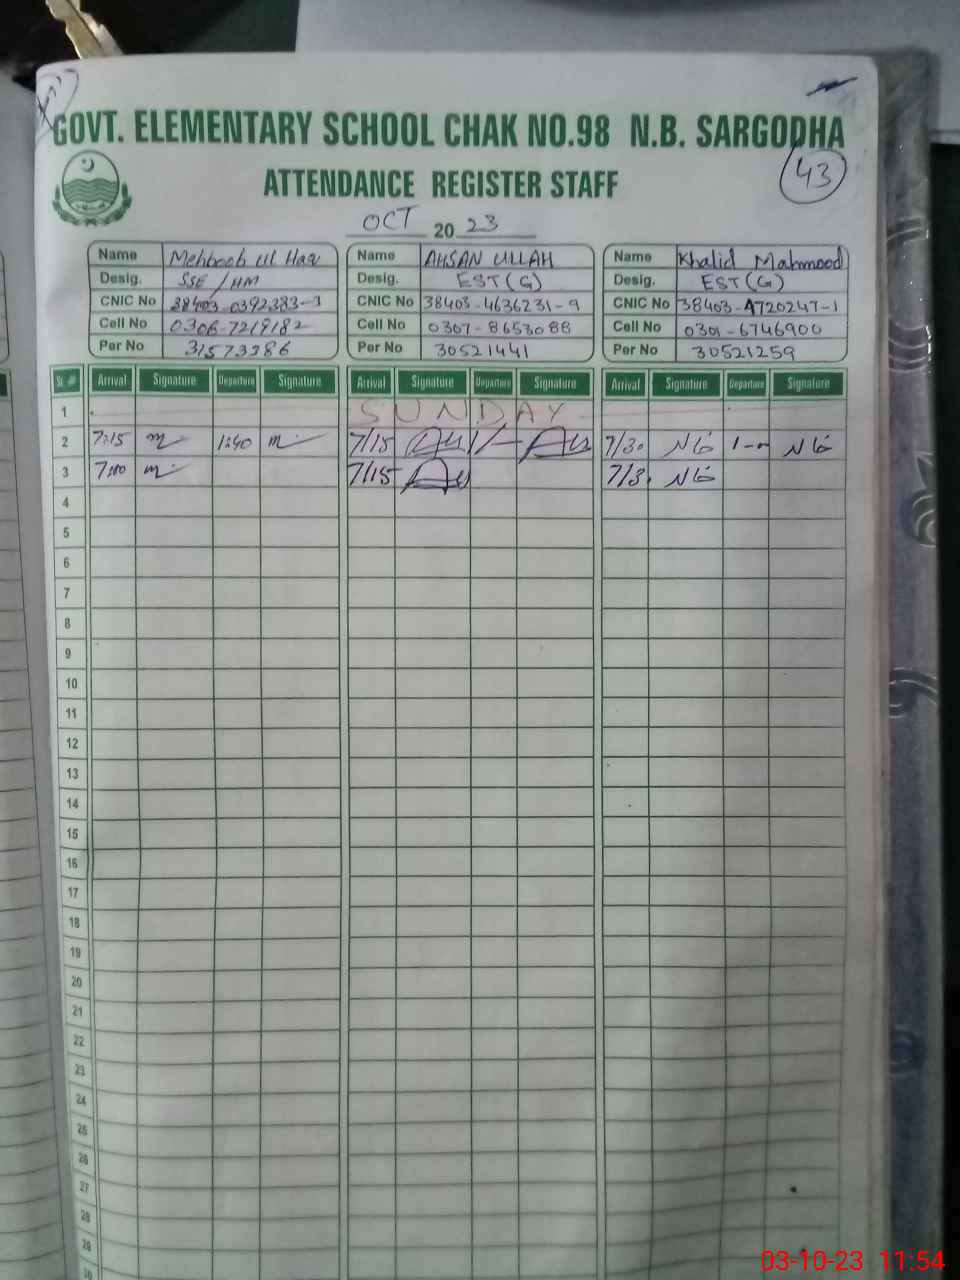 GOVT. ELEMENTARY SCHOOL CHAK NO.98 N.B. SARGODHA
ATTENDANCE REGISTER STAFF
43
OCT 20 23
Name Mehboob ul Haq Name AHSAN ULLAH Name Khalid Mahmood
Desig. SSE/HM Desig. EST(G) Desig. EST(G)
CNIC No 38403-0392383-3 CNIC No 38403-4636231-9 CNIC No 38403-4720247-1
Cell No 0306-7219182 Cell No 0307-8653088 Cell No 0301-6746900
Per No 31573386 Per No 30521441 Per No 30521259
Sr. # Arrival Signature Departure Signature Arrival Signature Departure Signature Arrival Signature Departure Signature
1 SUNDAY
2 7:15 1:40 7/15 1/- 7/30
3 7:00 7/15 7/30
4
5
6
7
8
9
10
11
12
13
14
15
16
17
18
19
20
21
22
23
24
25
26
27
28
29
30
03-10-23 11:54